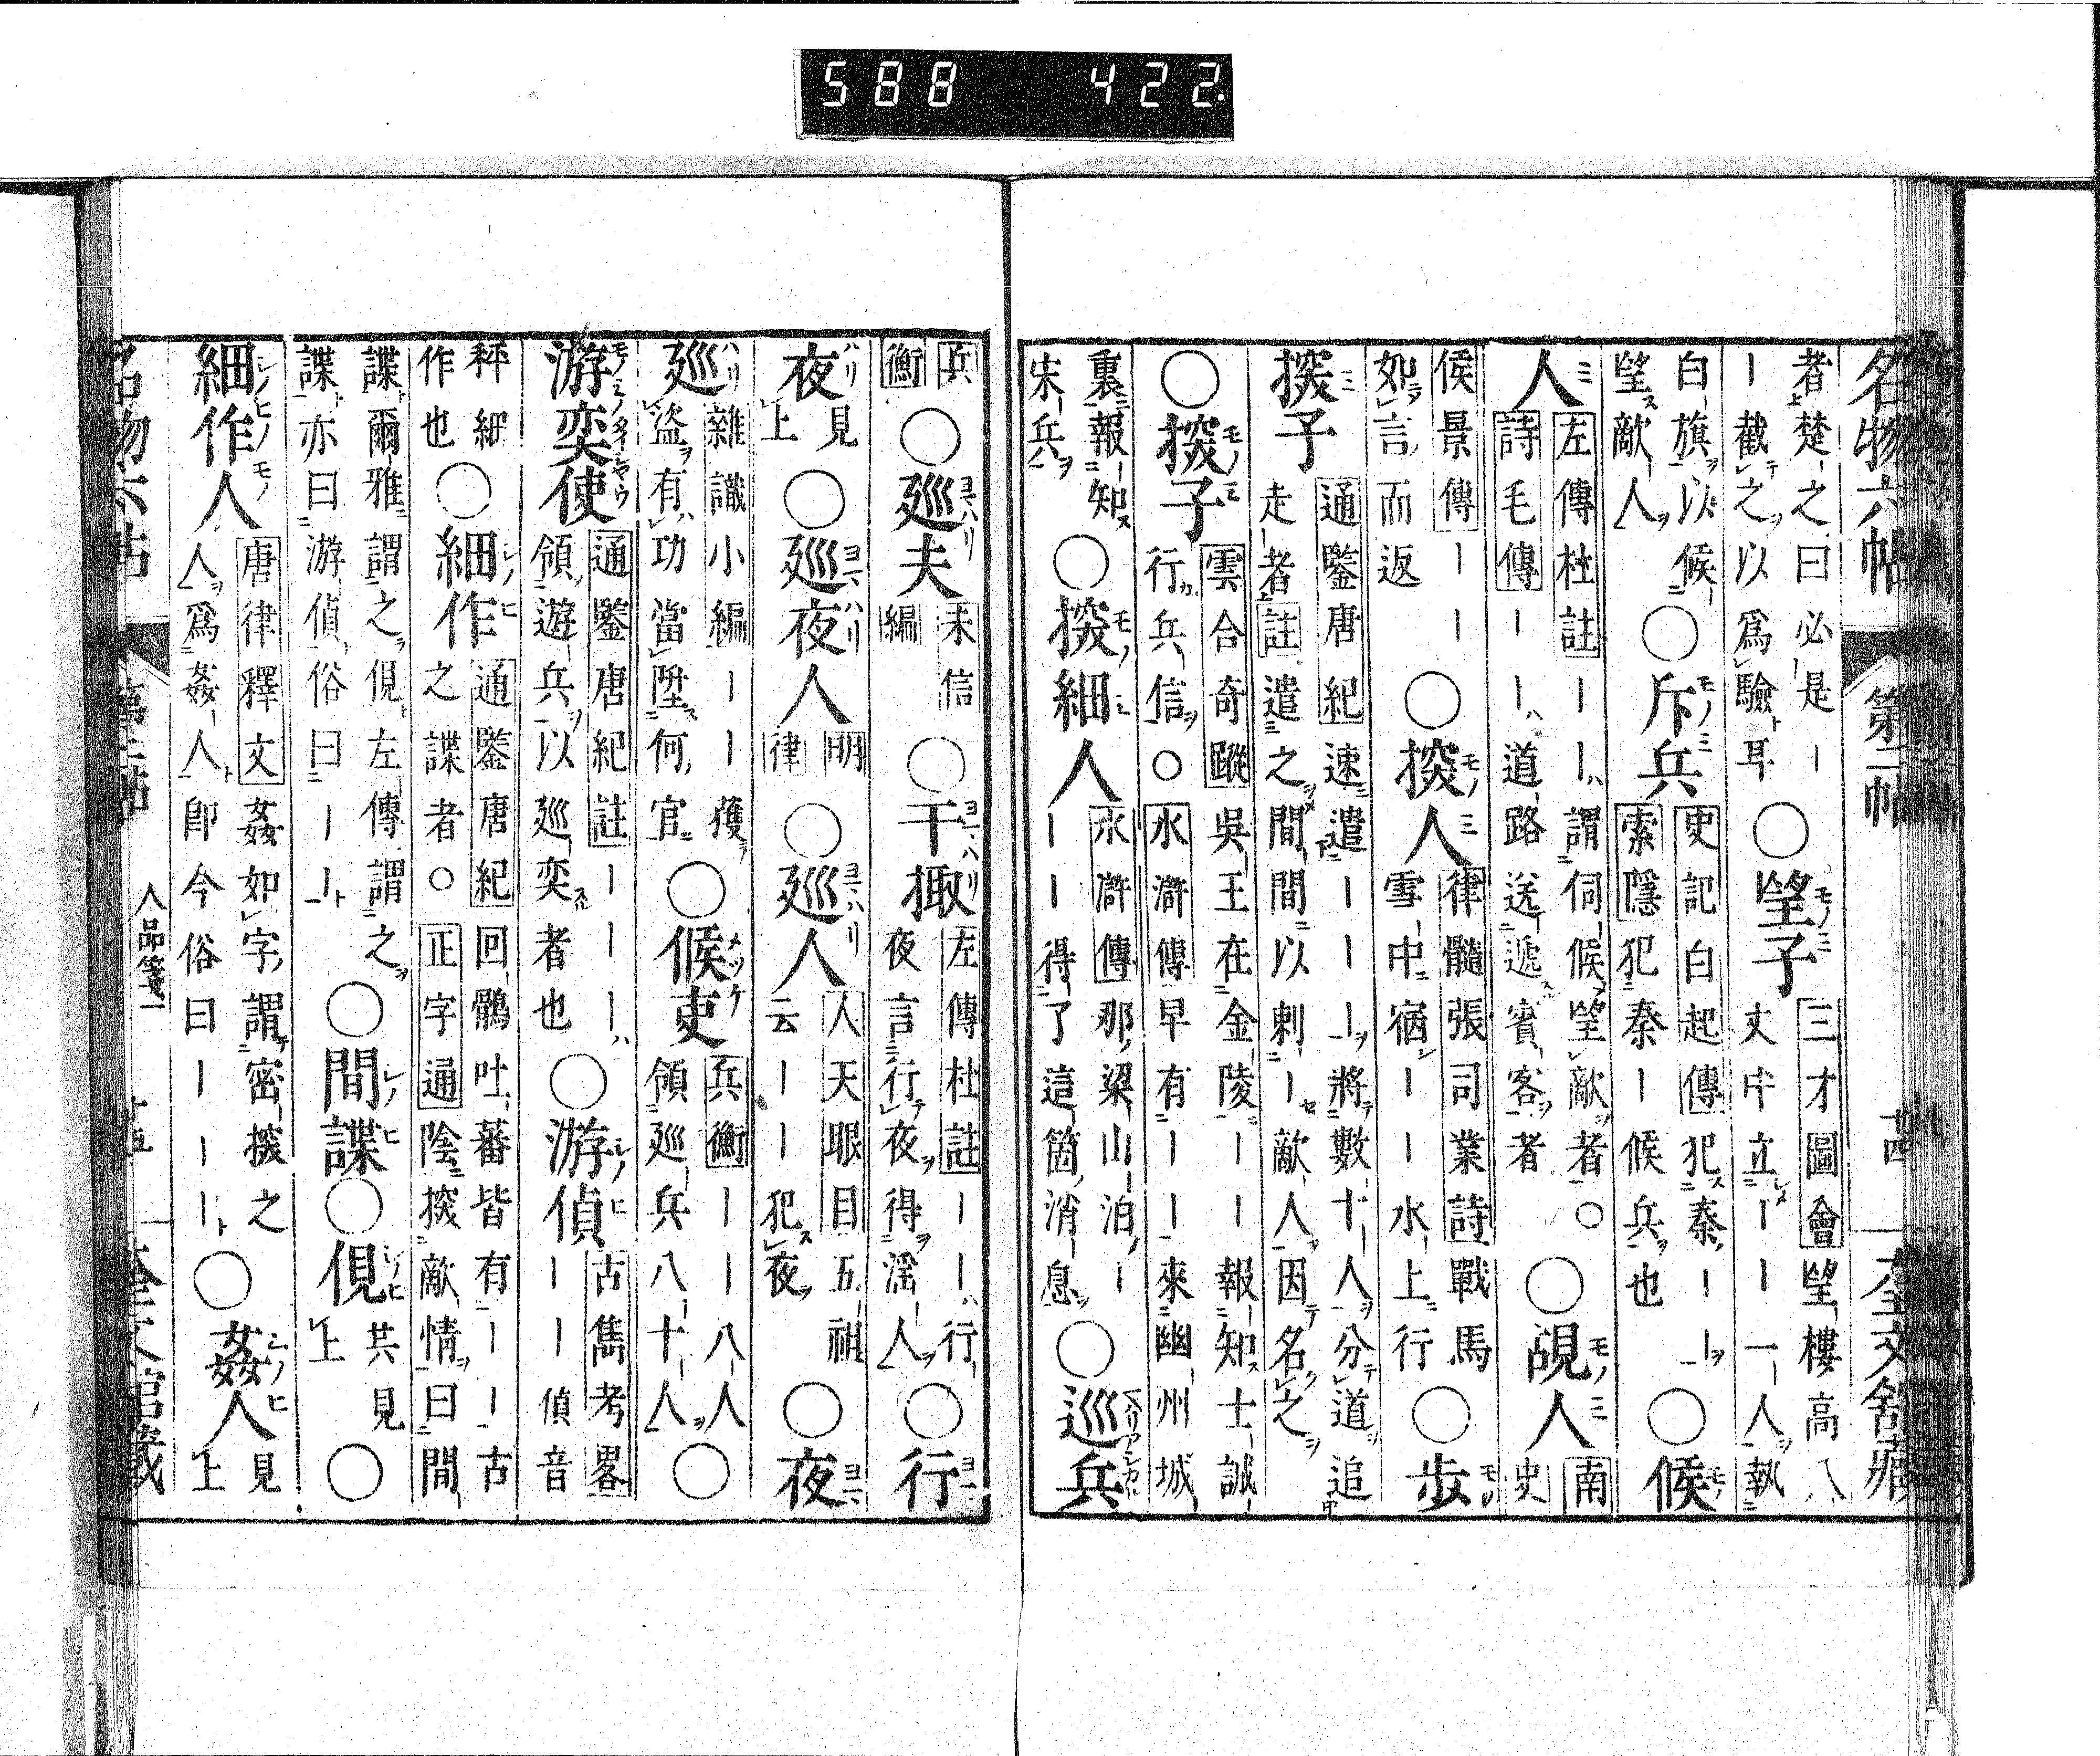 名物六帖 第二帖 廿四 奎文舘藏
者楚之曰必是｜
｜截之以爲驗耳
○望子
三才圖會望樓高八
丈中立｜｜一人執
白旗以候
望敵人
○斥兵
史記白起傳犯秦｜｜
索隱犯秦｜候兵也
○候
人
左傳杜註｜｜謂伺候望敵者○
詩毛傳｜｜道路送遞賓客者
○覘人
南
史
侯景傳｜｜
如言而返
○探人
律髓張司業詩戰馬
雪中宿｜｜水上行
○歩
探子
通鑒唐紀速遣｜｜｜將數十人分道追
走者註遣之間間以刺｜敵人因名之
○探子
雲合奇蹤吳王在金陵｜｜報知士誠
行兵信○水滸傳早有｜｜來幽州城
裏報知
宋兵
○探細人
水滸傳那梁山泊｜
｜｜得了這箇消息
○巡兵
兵
衡
○巡夫
未信
編
○干掫
左傳杜註｜｜行
夜言行夜得淫人
○行
夜
見
上
○巡夜人
明
律
○巡人
人天眼目五祖
云｜｜犯夜
○夜
巡
雜識小編｜｜獲
盜有功當陞何官
○候吏
兵衡｜｜八人
領巡兵八十人
○
游奕使
通鑒唐紀註｜｜｜
領遊兵以巡奕者也
○游偵
古雋考畧
｜｜偵音
秤細
作也
○細作
通鑒唐紀回鶻吐蕃皆有｜｜古
之諜者○正字通陰探敵情曰間
諜爾雅謂之俔左傳謂之
諜亦曰游偵俗曰｜｜
○間諜○俔
共見
上
○
細作人
唐律釋文姦如字謂密探之
人爲姦人卽今俗曰｜｜｜
○姦人
見
上
名物六帖 第二帖 人品箋一 廿五 奎文舘藏
588 422.